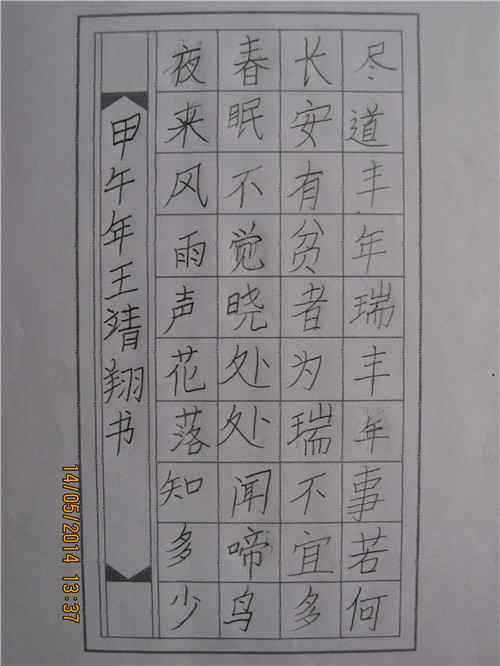 尽道丰年瑞丰年事若何
长安有贫者为瑞不宜多
春眠不觉晓处处闻啼鸟
夜来风雨声花落知多少
甲午年王靖翔书
14/05/2014 13:37